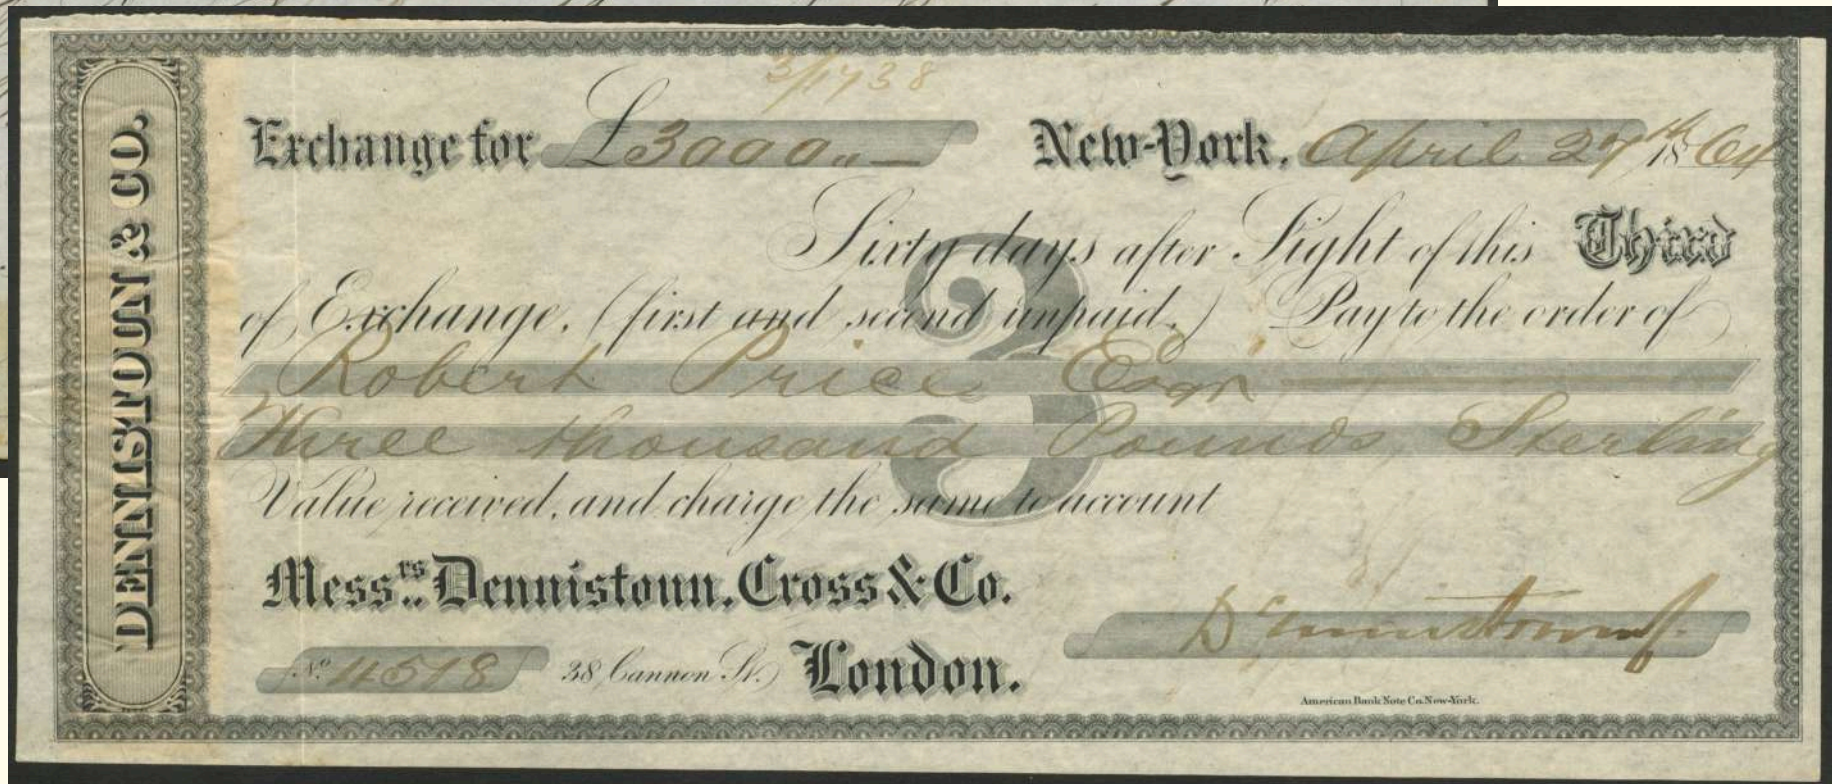 DENNISTOUN & CO.
3/1738
Exchange for £3000„— New-York, April 27th 1864
Sixty days after Sight of this Third
of Exchange, (first and second unpaid,) Pay to the order of
Robert Price Esqr
Three thousand Pounds Sterling
Value received, and charge the same to account
3
Messrs. Dennistoun, Cross & Co.
Dennistoun
No. 4518 38, Cannon St. London.
American Bank Note Co. New-York.